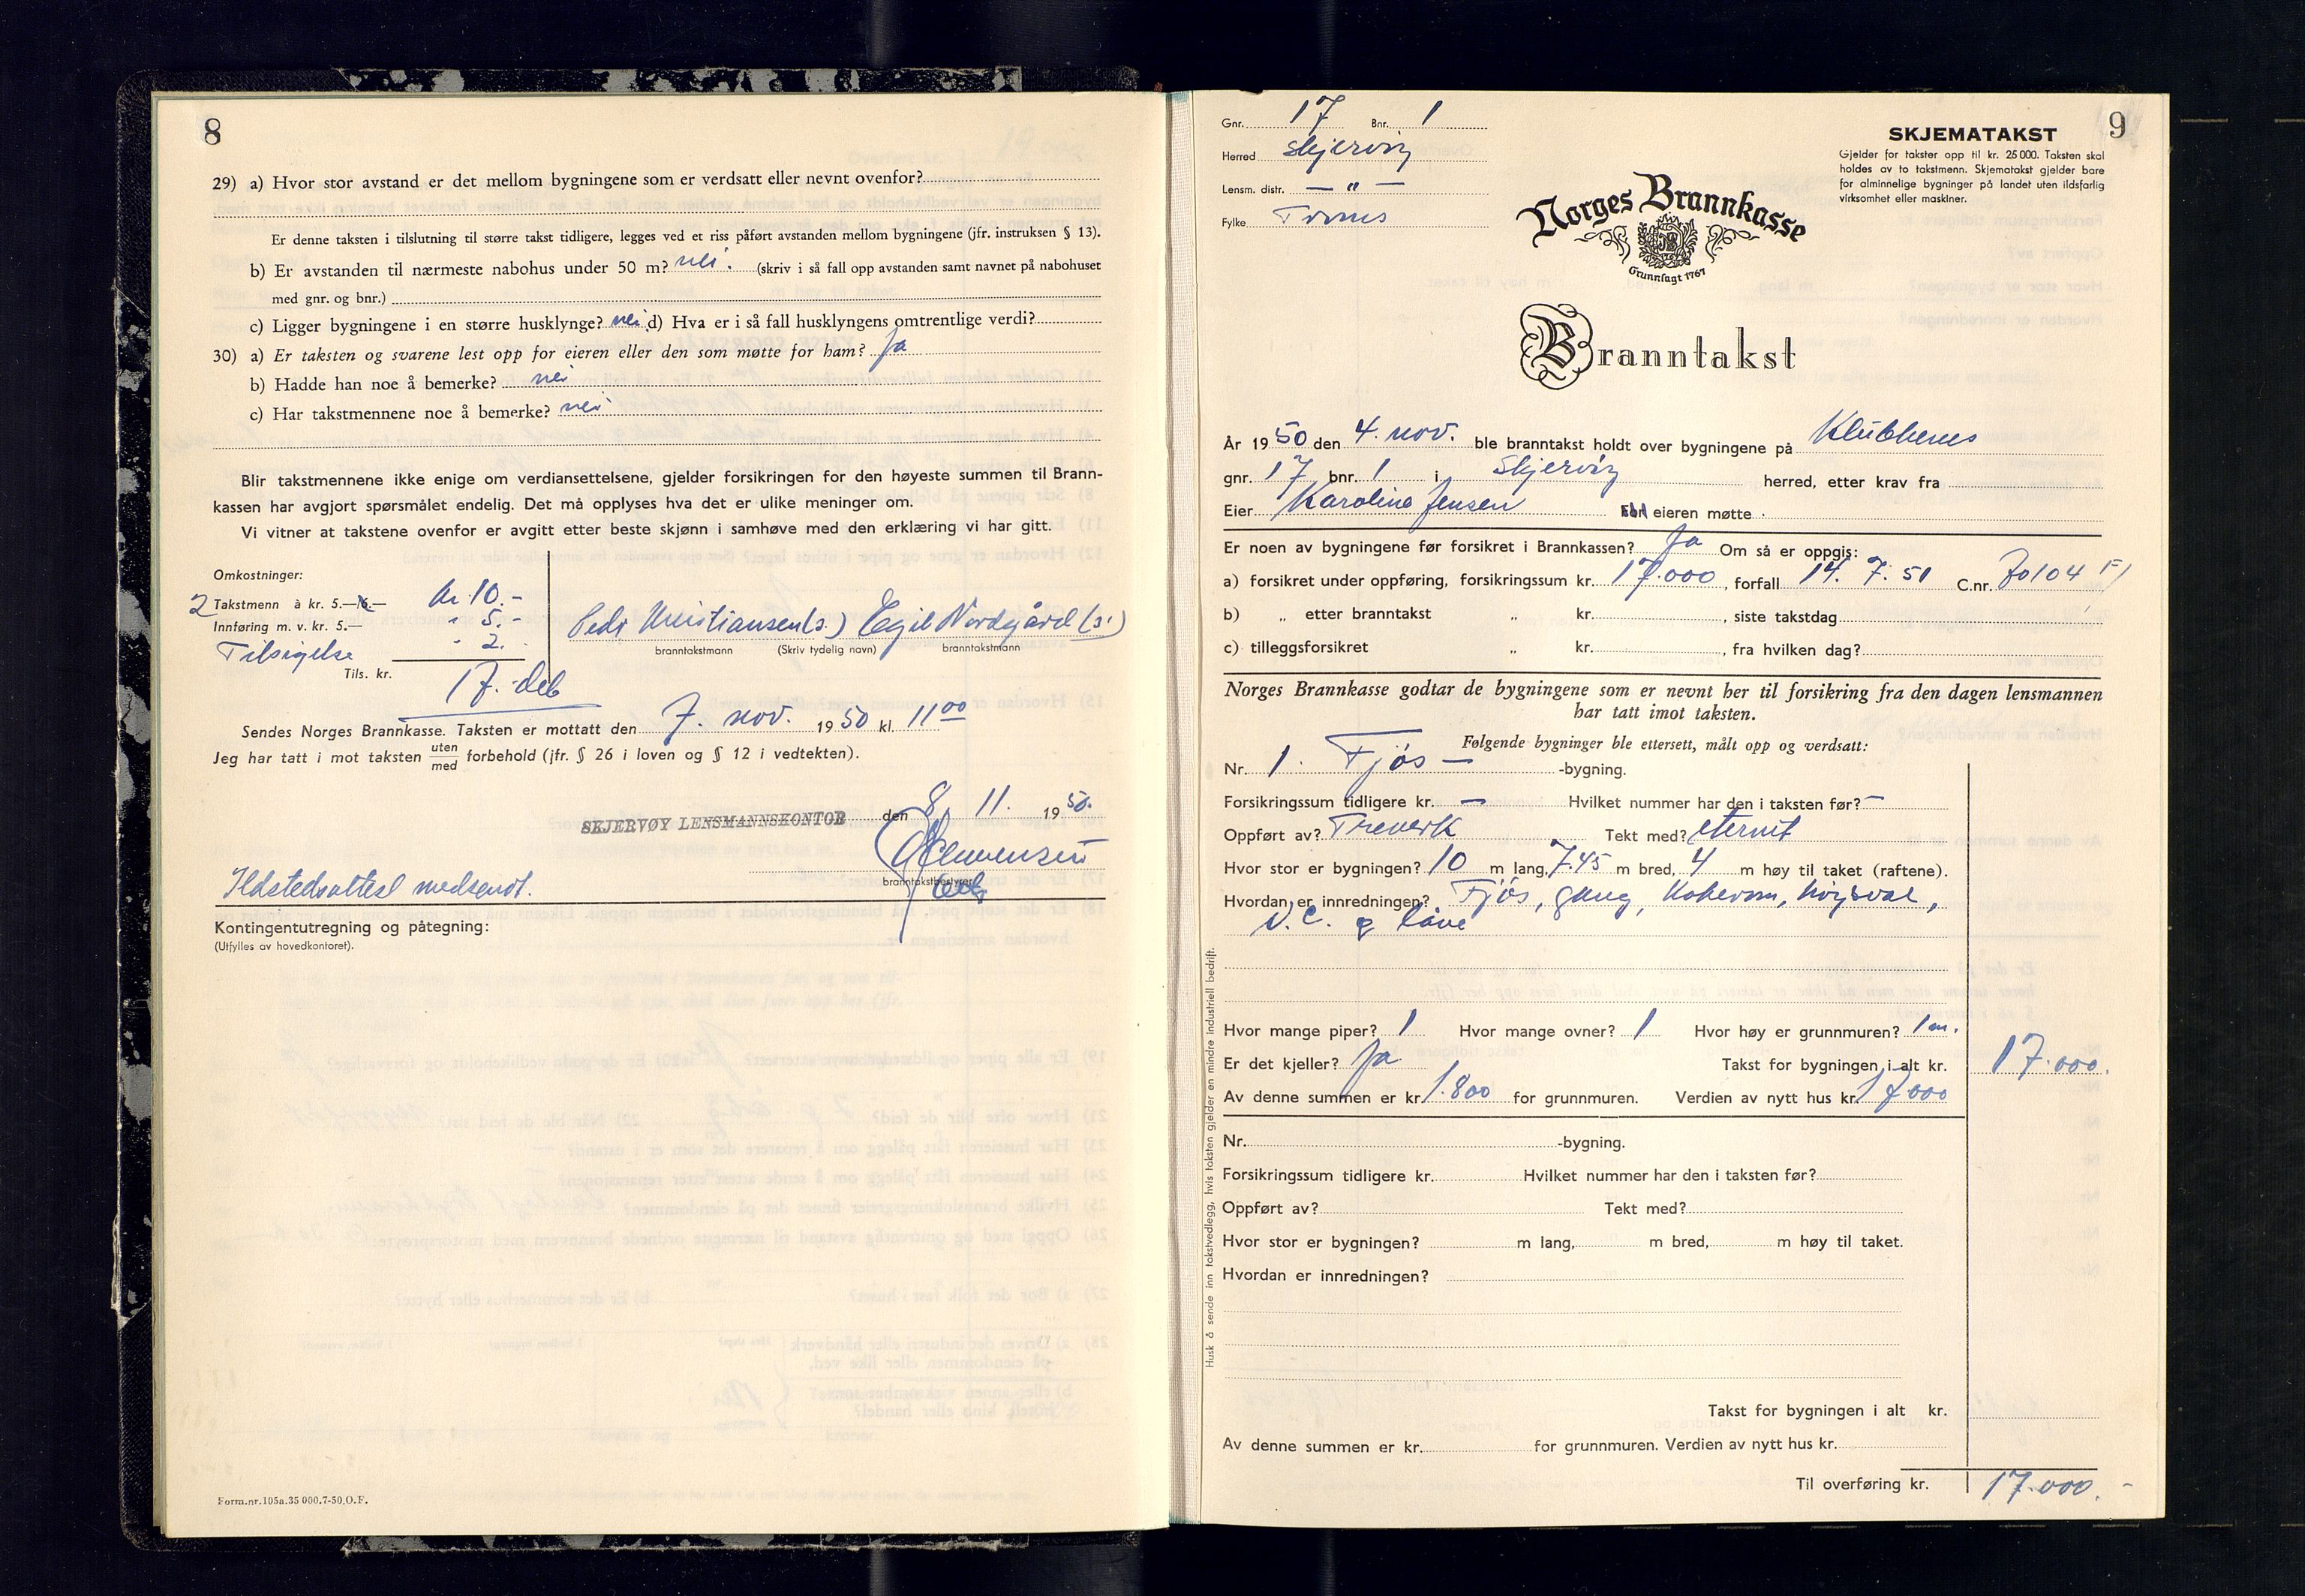 8
29) a) Hvor stor avstand er det mellom bygningene som er verdsatt eller nevnt ovenfor?
Er denne taksten i tilslutning til større takst tidligere, legges ved et riss påført avstanden mellom bygningene (jfr. instruksen § 13).
b) Er avstanden til nærmeste nabohus under 50 m? nei. (skriv i så fall opp avstanden samt navnet på nabohuset
med gnr. og bnr.)
c) Ligger bygningene i en større husklynge? nei d) Hva er i så fall husklyngens omtrentlige verdi?
30) a) Er taksten og svarene lest opp for eieren eller den som møtte for ham? Ja
b) Hadde han noe å bemerke? nei
c) Har takstmennene noe å bemerke? nei
Blir takstmennene ikke enige om verdiansettelsene, gjelder forsikringen for den høyeste summen til Brann-
kassen har avgjort spørsmålet endelig. Det må opplyses hva det er ulike meninger om.
Vi vitner at takstene ovenfor er avgitt etter beste skjønn i samhøve med den erklæring vi har gitt.
Omkostninger:
2 Takstmenn à kr. 5.— kr. 10.-
Innføring m. v. kr. 5.— - 5.-
Tilsigelse - 2.
Tils. kr. 17.- deb
Peder Kristiansen (s.) Egil Nordgård (s.)
branntakstmann (Skriv tydelig navn) branntakstmann
Sendes Norges Brannkasse. Taksten er mottatt den 7. nov. 1950 kl. 11⁰⁰
Jeg har tatt i mot taksten uten/med forbehold (jfr. § 26 i loven og § 12 i vedtekten).
SKJERVØY LENSMANNSKONTOR den 8/ 11. 1950.
branntakstbestyrer
Ildstedsattest medsendt.
Kontingentutregning og påtegning:
(Utfylles av hovedkontoret).
Form.nr.105a.35 000.7-50,O.F.
9
Gnr. 17 Bnr. 1
Herred Skjervöy
Lensm. distr. — " —
Fylke Troms
SKJEMATAKST
Gjelder for takster opp til kr. 25 000. Taksten skal
holdes av to takstmenn. Skjematakst gjelder bare
for alminnelige bygninger på landet uten ildsfarlig
virksomhet eller maskiner.
Norges Brannkasse
Grunnlagt 1767
Branntakst
År 1950 den 4. nov. ble branntakst holdt over bygningene på Klubbenes
gnr. 17 bnr. 1 i Skjervöy herred, etter krav fra
Eier Karoline Jensen eieren møtte
Er noen av bygningene før forsikret i Brannkassen? Ja Om så er oppgis:
a) forsikret under oppføring, forsikringssum kr. 17.000, forfall 14. 7. 51 C.nr. 70104
b) „ etter branntakst „ kr. , siste takstdag
c) tilleggsforsikret „ kr. , fra hvilken dag?
Norges Brannkasse godtar de bygningene som er nevnt her til forsikring fra den dagen lensmannen
har tatt imot taksten.
Følgende bygninger ble ettersett, målt opp og verdsatt:
Nr. 1. Fjös — -bygning.
Forsikringssum tidligere kr. — Hvilket nummer har den i taksten før? —
Oppført av? Treverk Tekt med? eternit
Hvor stor er bygningen? 10 m lang, 7.45 m bred, 4 m høy til taket (raftene).
Hvordan er innredningen? Fjös, gang, kokerom, höisval,
V.C. og låve
Hvor mange piper? 1 Hvor mange ovner? 1 Hvor høy er grunnmuren? 1 m.
Er det kjeller? Ja Takst for bygningen i alt kr. 17.000.
Av denne summen er kr. 1.800 for grunnmuren. Verdien av nytt hus kr. 17000
Nr. -bygning.
Forsikringssum tidligere kr. Hvilket nummer har den i taksten før?
Oppført av? Tekt med?
Hvor stor er bygningen? m lang, m bred, m høy til taket.
Hvordan er innredningen?
Takst for bygningen i alt kr.
Av denne summen er kr. for grunnmuren. Verdien av nytt hus kr.
Til overføring kr. 17.000.-
Husk å sende inn takstvedlegg, hvis taksten gjelder en mindre industriell bedrift.